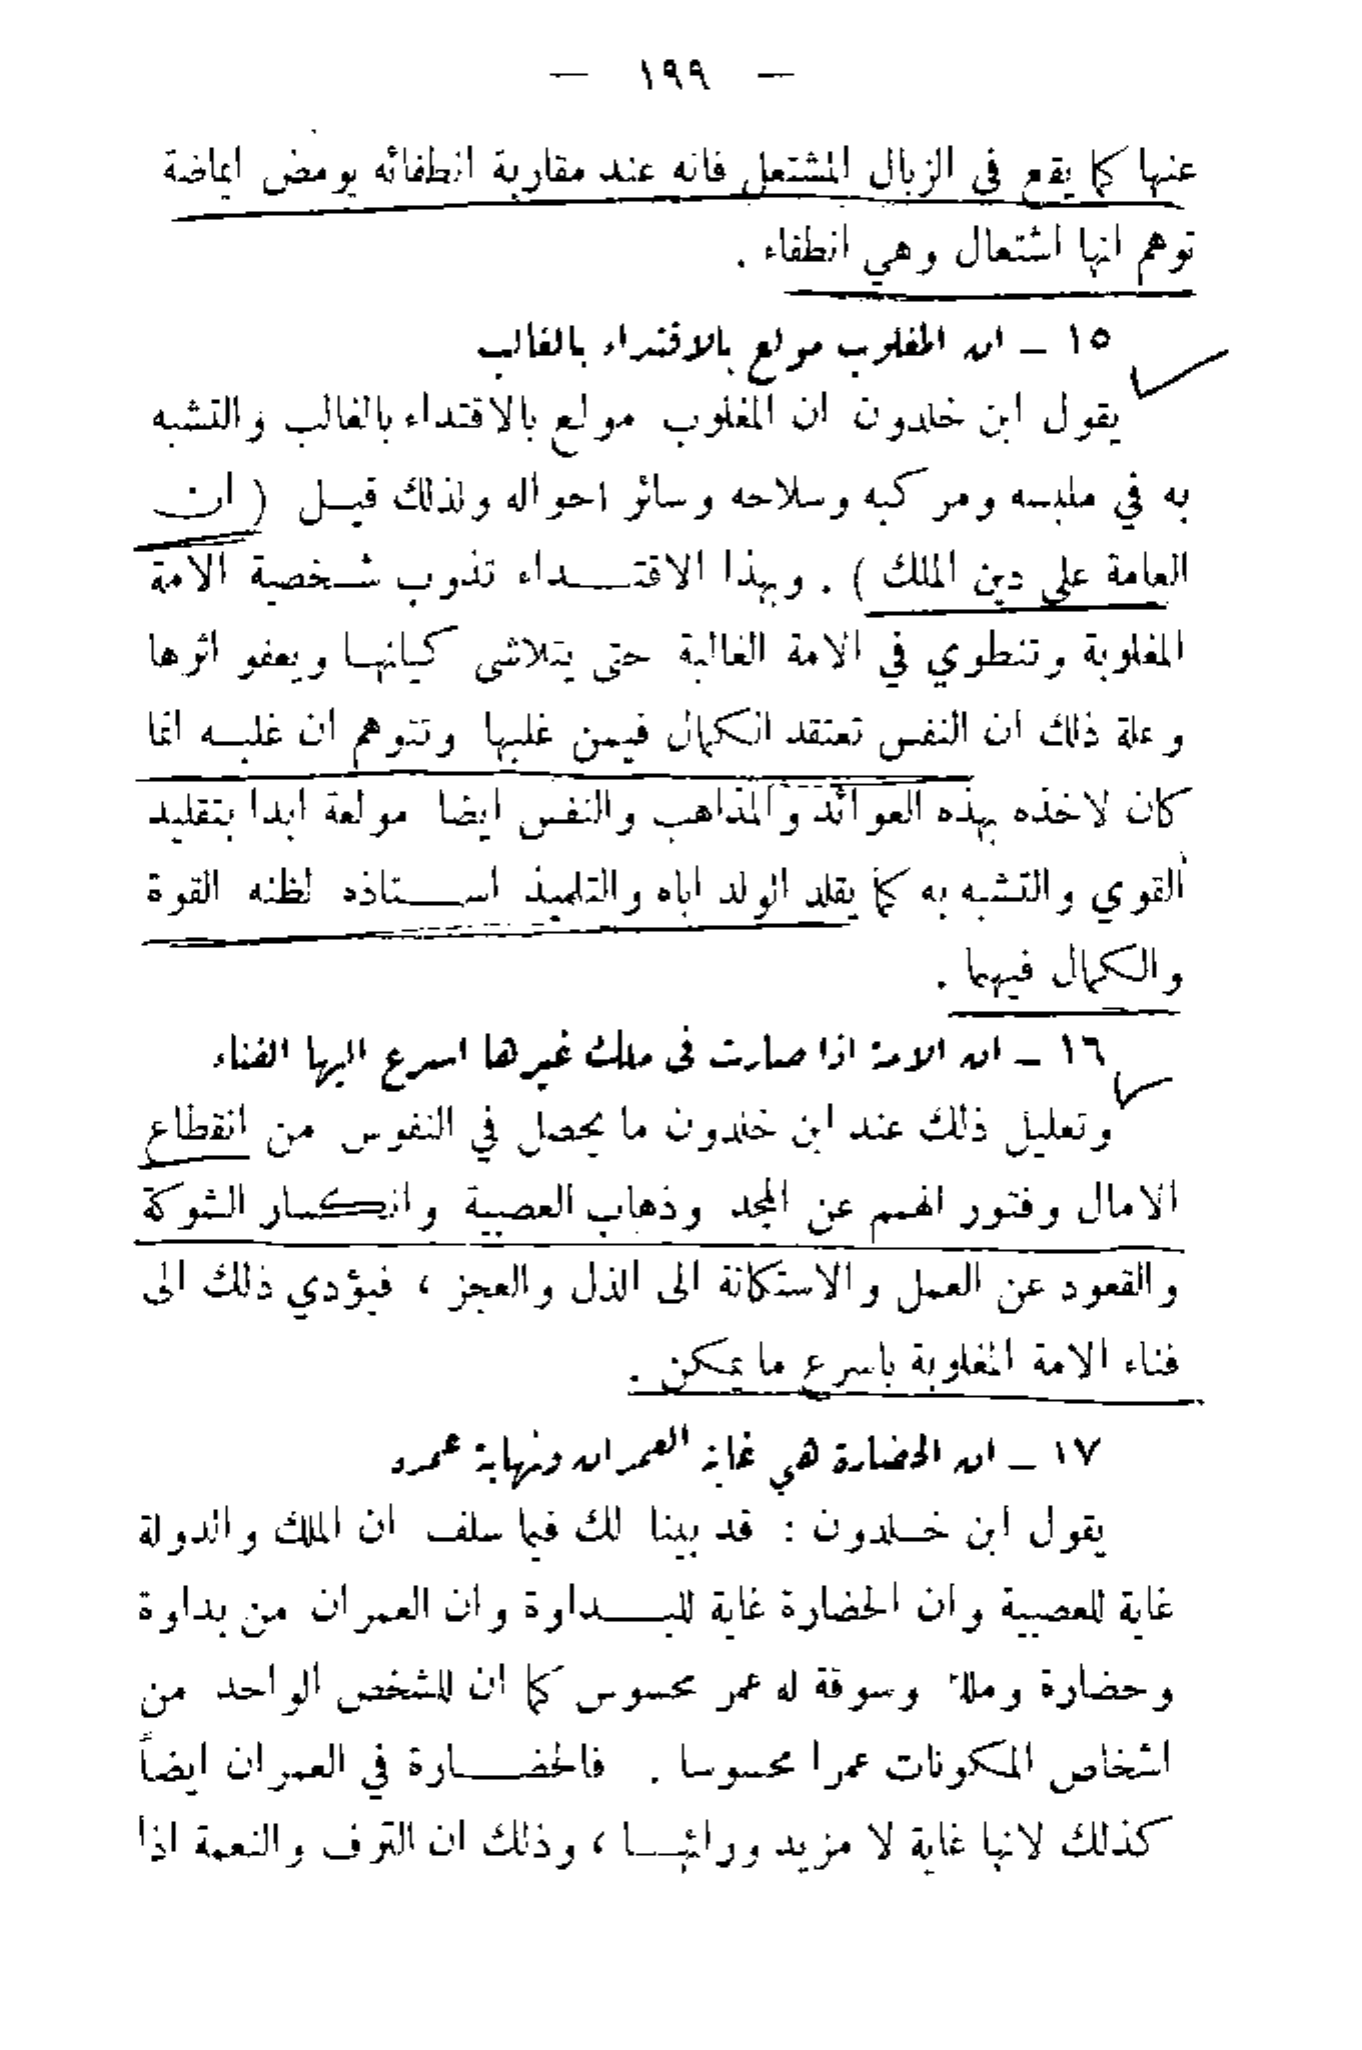 — ١٩٩ —
عنها كما يقع في الزبال المشتعل فانه عند مقاربة انطفائه يومض ايماضة
توهم انها اشتعال وهي انطفاء .
١٥ – ان المغلوب مولع بالاقتداء بالغالب
يقول ابن خلدون ان المغلوب مولع بالاقتداء بالغالب والتشبه
به في ملبسه ومركبه وسلاحه وسائر احواله ولذلك قيل ( ان
العامة على دين الملك ) . وبهذا الاقتداء تذوب شخصية الامة
المغلوبة وتنطوي في الامة الغالبة حتى يتلاشى كيانها ويعفو اثرها
وعلة ذلك ان النفس تعتقد الكمال فيمن غلبها وتتوهم ان غلبه انما
كان لاخذه بهذه العوائد والمذاهب والنفس ايضا مولعة ابدا بتقليد
القوي والتشبه به كما يقلد الولد اباه والتلميذ استاذه لظنه القوة
والكمال فيهما .
١٦ – ان الامة اذا صارت في ملك غيرها اسرع اليها الفناء
وتعليل ذلك عند ابن خلدون ما يحصل في النفوس من انقطاع
الامال وفتور الهمم عن المجد وذهاب العصبية وانكسار الشوكة
والقعود عن العمل والاستكانة الى الذل والعجز ، فيؤدي ذلك الى
فناء الامة المغلوبة باسرع ما يمكن .
١٧ – ان الحضارة هي غاية العمران ونهاية عمره
يقول ابن خلدون : قد بينا لك فيما سلف ان الملك والدولة
غاية للعصبية وان الحضارة غاية للبداوة وان العمران من بداوة
وحضارة وملك وسوقة له عمر محسوس كما ان للشخص الواحد من
اشخاص المكونات عمرا محسوسا . فالحضارة في العمران ايضاً
كذلك لانها غاية لا مزيد وراءها ، وذلك ان الترف والنعمة اذا